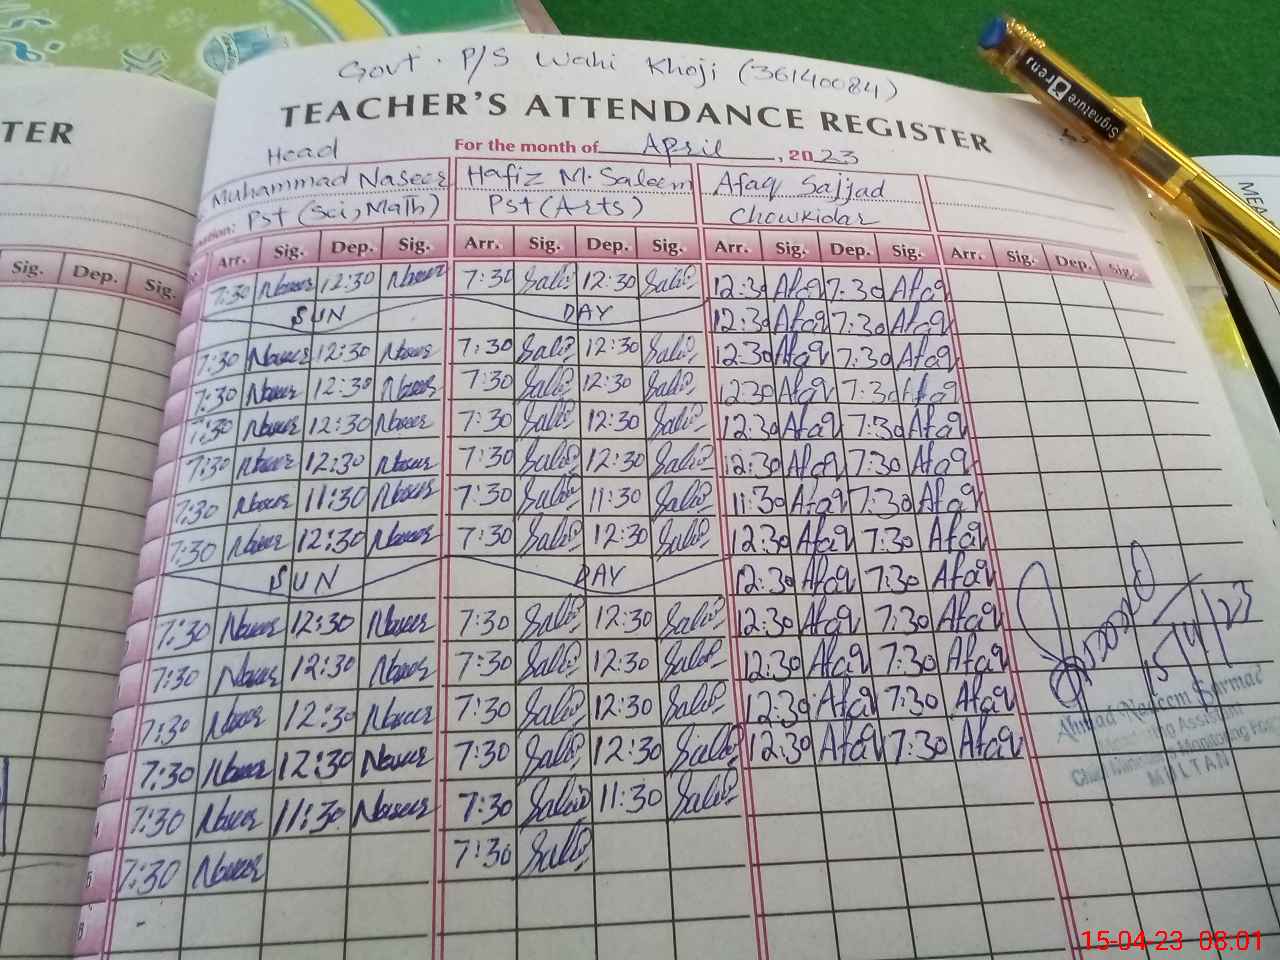 Govt. P/S Wahi Khoji (36140084)
TER
TEACHER'S ATTENDANCE REGISTER
Head For the month of April, 2023
Muhammad Naseer Hafiz M. Saleem Afaq Sajjad
Pst (Sci, Math) Pst (Arts) Chowkidar
Sig. Dep. Sig. Arr. Sig. Dep. Sig. Arr. Sig. Dep. Sig. Arr. Sig. Dep. Sig. Arr. Sig. Dep. Sig.
7:30 Naseer 12:30 Naseer 7:30 Sale 12:30 Sale 12:30 Afaq 7:30 Afaq
SUN DAY 12:30 Afaq 7:30 Afaq
7:30 Naseer 12:30 Naseer 7:30 Sale 12:30 Sale 12:30 Afaq 7:30 Afaq
7:30 Naseer 12:30 Naseer 7:30 Sale 12:30 Sale 12:30 Afaq 7:30 Afaq
7:30 Naseer 12:30 Naseer 7:30 Sale 12:30 Sale 12:30 Afaq 7:30 Afaq
7:30 Naseer 12:30 Naseer 7:30 Sale 12:30 Sale 12:30 Afaq 7:30 Afaq
7:30 Naseer 11:30 Naseer 7:30 Sale 11:30 Sale 11:30 Afaq 7:30 Afaq
7:30 Naseer 12:30 Naseer 7:30 Sale 12:30 Sale 12:30 Afaq 7:30 Afaq
SUN DAY 12:30 Afaq 7:30 Afaq
7:30 Naseer 12:30 Naseer 7:30 Sale 12:30 Sale 12:30 Afaq 7:30 Afaq
7:30 Naseer 12:30 Naseer 7:30 Sale 12:30 Sale 12:30 Afaq 7:30 Afaq
7:30 Naseer 12:30 Naseer 7:30 Sale 12:30 Sale 12:30 Afaq 7:30 Afaq
7:30 Naseer 12:30 Naseer 7:30 Sale 12:30 Sale 12:30 Afaq 7:30 Afaq
7:30 Naseer 11:30 Naseer 7:30 Sale 11:30 Sale
7:30 Naseer 7:30 Sale
15/4/23
Ahmad Naeem Sarmad
Monitoring Assistant
Chief Minister's Monitoring Force
MULTAN
Signature
15-04-23 08:01